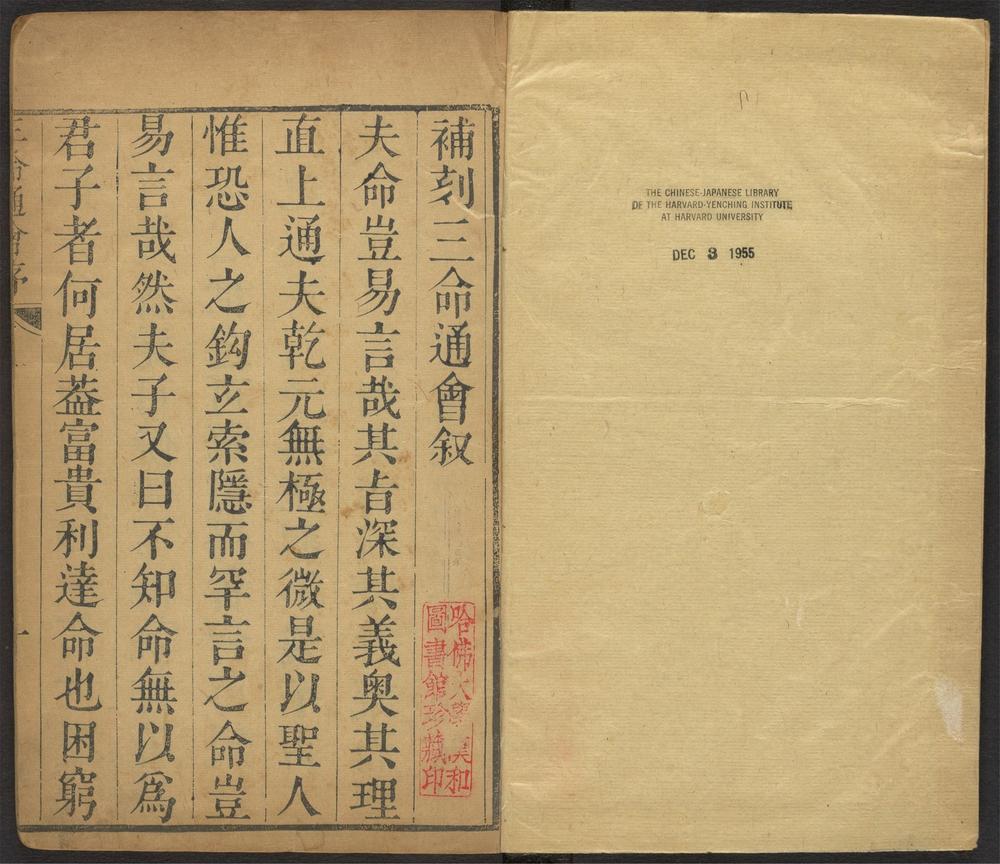 THE CHINESE-JAPANESE LIBRARY
OF THE HARVARD-YENCHING INSTITUTE
AT HARVARD UNIVERSITY
DEC 3 1955
補刻三命通會叙
哈佛大學漢和
圖書館珍藏印
夫命豈易言哉其㫖深其義奥其理
直上通夫乾元無極之微是以聖人
惟恐人之鈎玄索隱而罕言之命豈
易言哉然夫子又曰不知命無以爲
君子者何居葢富貴利達命也困窮
三命通會序
一